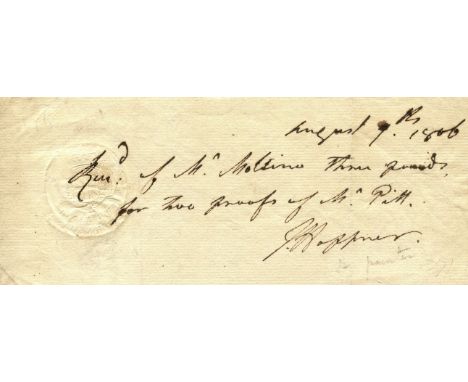 August 9th 1806
Recd: of Mr Molteno three pounds
for two proofs of Mr Pitt.
J Hoppner.
painter